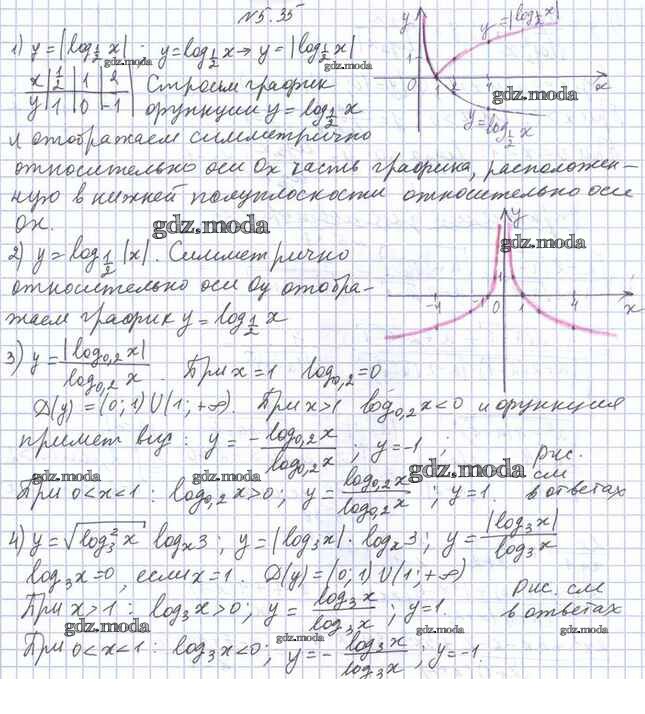 №5.35
1) y=|log_{1/2} x| ; y=log_{1/2} x → y=|log_{1/2} x|
x | 1/2 | 1 | 2 | Строим график
y | 1 | 0 | -1 | функции y=log_{1/2} x
и отображаем симметрично
относительно оси Ox часть графика, расположен-
ную в нижней полуплоскости относительно оси
Ox.
y
y=|log_{1/2} x|
1
0 1 2 4 x
y=log_{1/2} x
2) y=log_{1/2} |x|. Симметрично
относительно оси Oy отобра-
жаем график y=log_{1/2} x
y
1
-1 0 1 4 x
3) y=|log_{0,2} x|/log_{0,2} x . При x=1 log_{0,2}=0
D(y)=(0;1)∪(1;+∞). При x>1 log_{0,2} x<0 и функция
примет вид: y=-log_{0,2} x/log_{0,2} x ; y=-1 ;
При 0<x<1: log_{0,2} x>0; y=log_{0,2} x/log_{0,2} x ; y=1.
Рис.
см
в ответах
4) y=√(log_3^2 x) log_x 3 ; y=|log_3 x|·log_x 3 ; y=|log_3 x|/log_3 x
log_3 x=0, если x=1. D(y)=(0;1)∪(1;+∞)
При x>1: log_3 x>0; y=log_3 x/log_3 x ; y=1.
Рис. см
в ответах
При 0<x<1: log_3 x<0; y=-log_3 x/log_3 x ; y=-1.
gdz.moda
gdz.moda
gdz.moda
gdz.moda
gdz.moda
gdz.moda
gdz.moda
gdz.moda
gdz.moda
gdz.moda
gdz.moda
gdz.moda
gdz.moda
gdz.moda